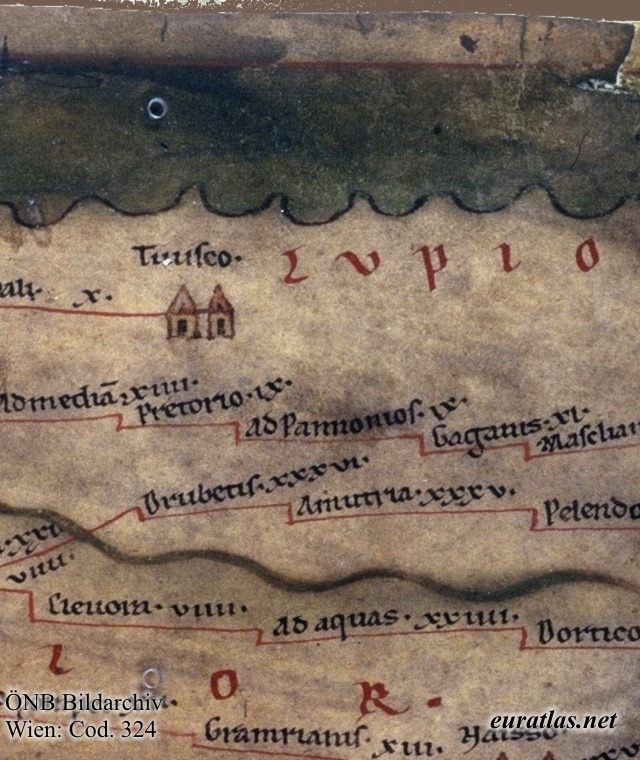 Tiuisco.
L V P I O
x.
Admediā xiiii.
Pretorio. ix.
Ad Pannonios. ix.
Gaganis. xi.
Masclian
Drubetis. xxxvi.
Amutria. xxxv.
Pelendo
xxi
viiii.
Clevora. viiii.
Ad aquas. xxiiii.
Dortico
I O R.
ÖNB Bildarchiv
Wien: Cod. 324
euratlas.net
Gramrianis. xiii.